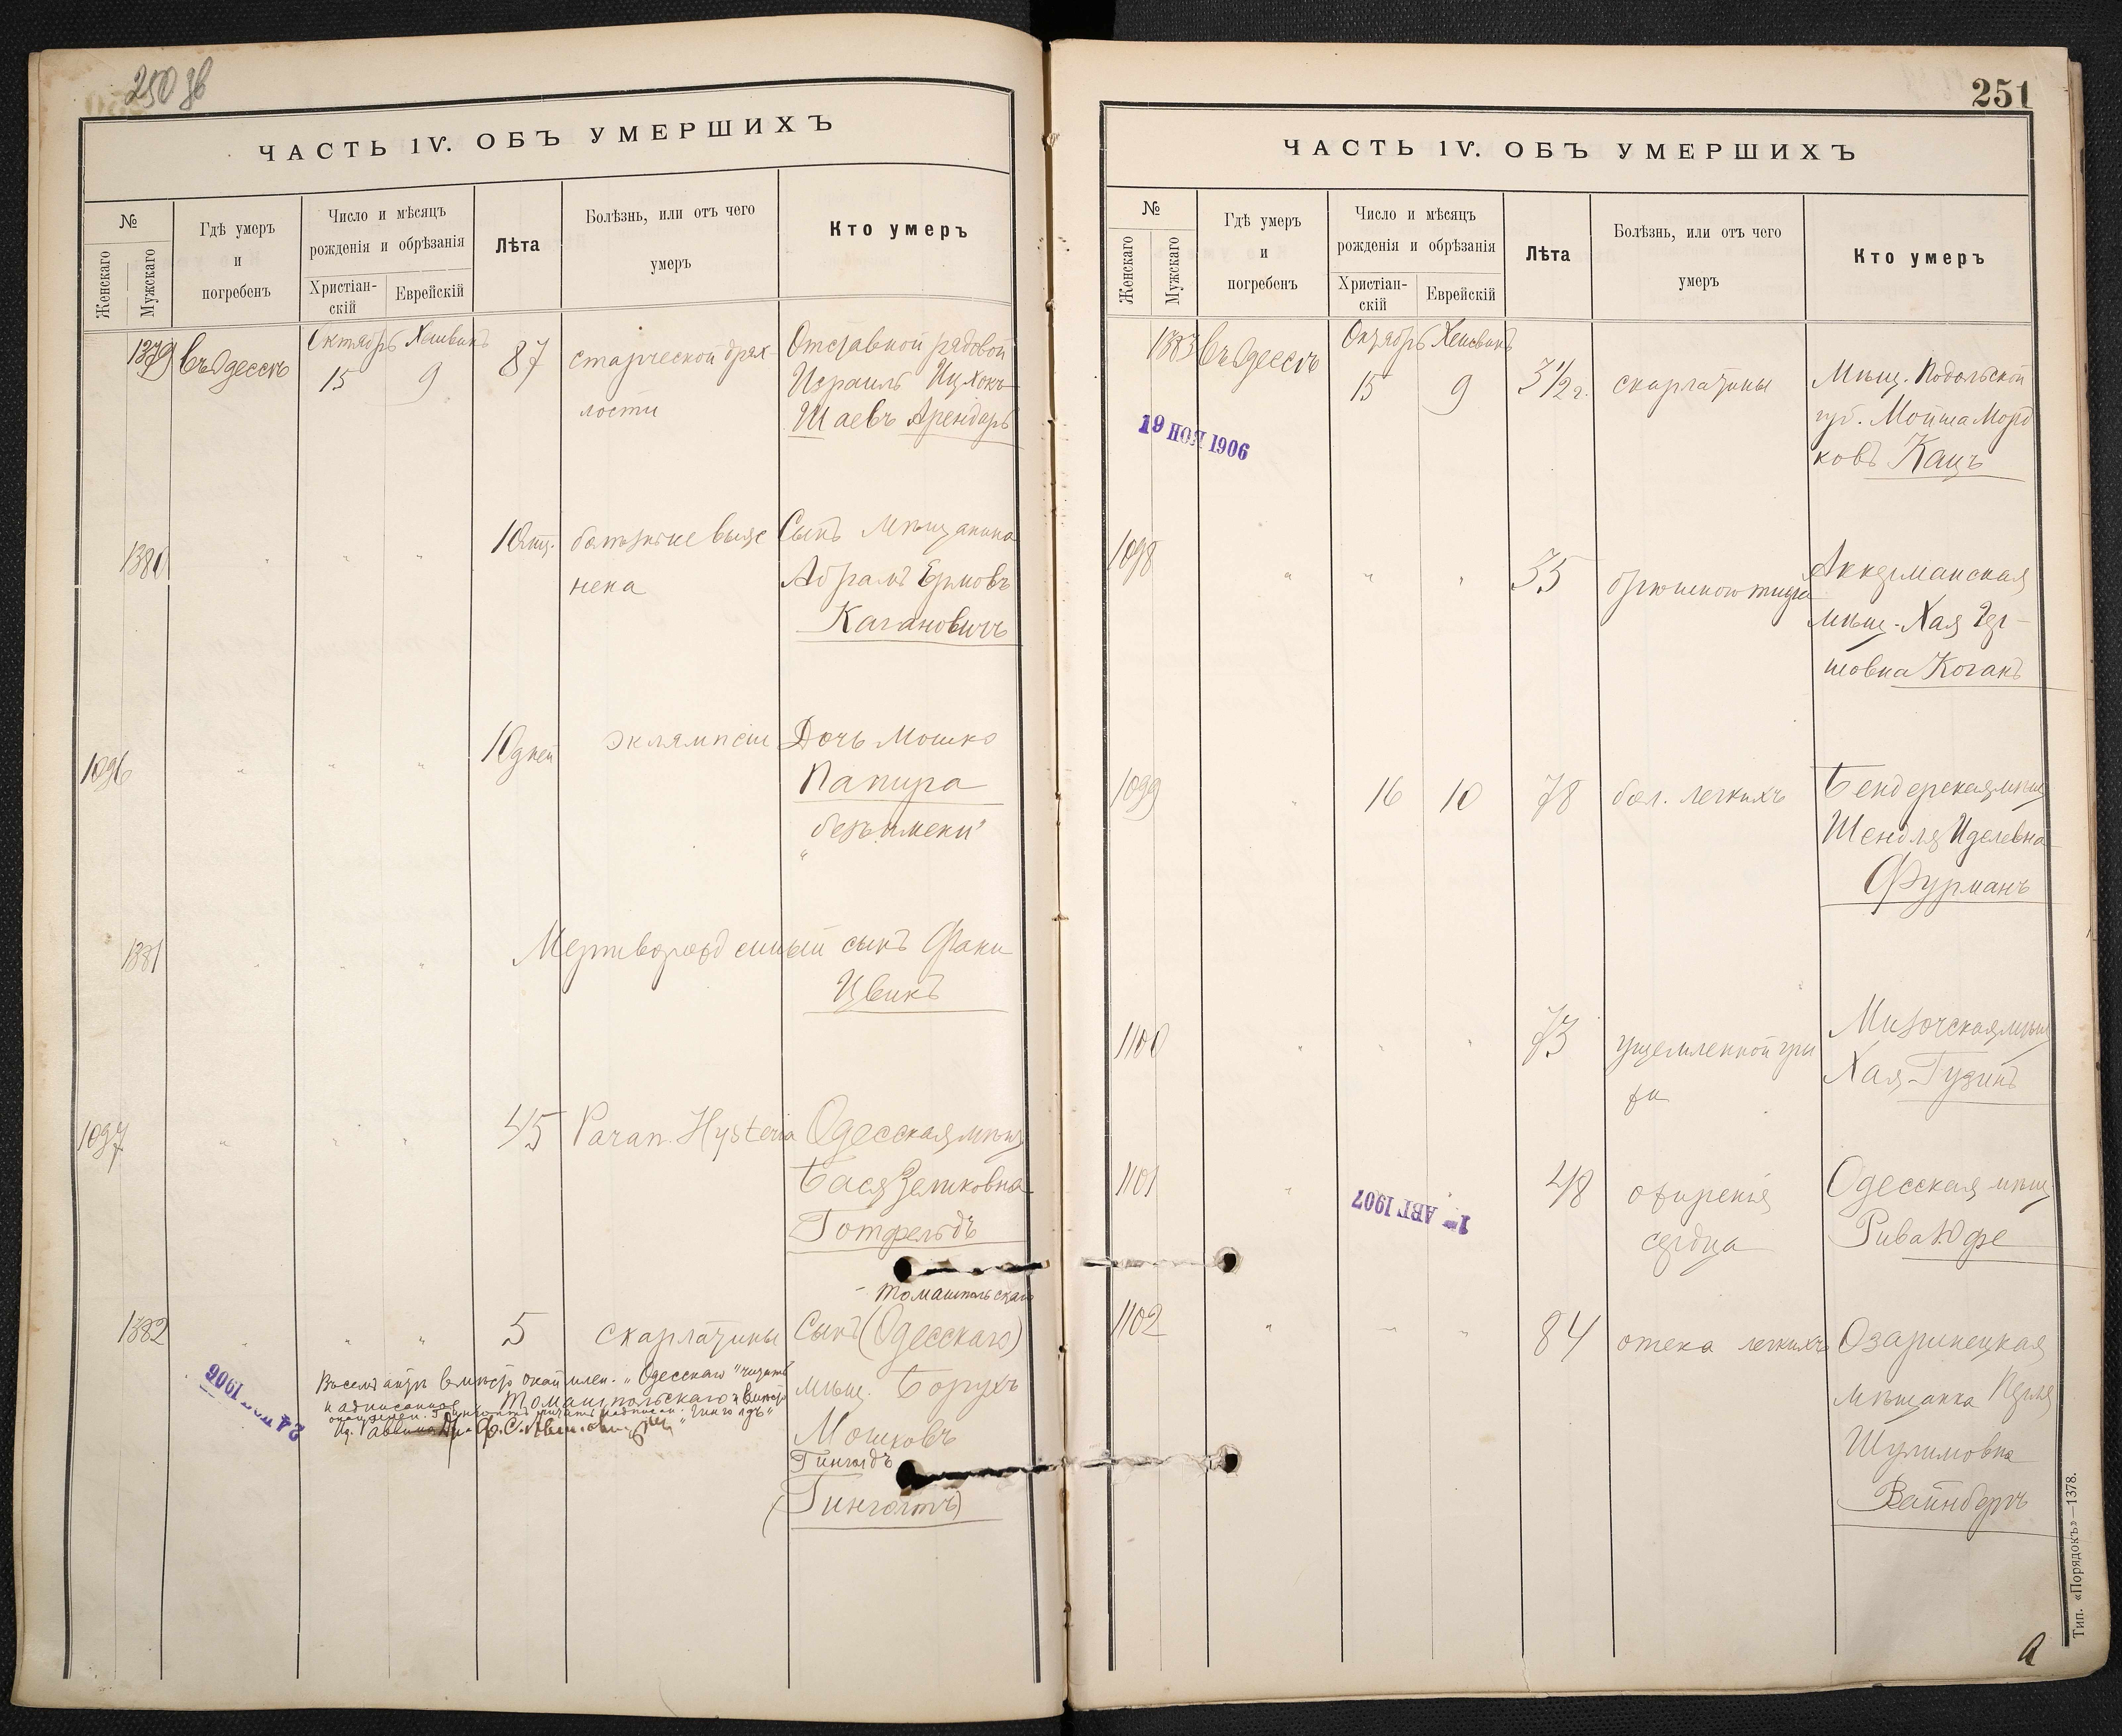 250 зв
ЧАСТЬ IV. ОБЪ УМЕРШИХЪ
№
Женскаго
Мужскаго
Гдѣ умеръ
и
погребенъ
Число и мѣсяцъ
рожденія и обрѣзанія
Христіан-
скій
Еврейскій
Лѣта
Болѣзнь, или отъ чего
умеръ
Кто умеръ
Октябрь Хешванъ
1379 Въ Одессѣ 15 9 87 старческой дрях-
лости
Отставной рядовой
Израиль Ицхокъ
Шаевъ Арендарь
1380 " " " 10 мц.
нека
Сынъ мѣщанина
Абрамъ
Кагановичъ
1096 " " " 10 дней эклямпсіи Дочь Мошко
Папира
"безъ имени"
1381 " " " Мертворожденный сынъ Фани
Цвикъ
1097 " " " 45 Hysteria Одесская мѣщ
Бася Зелиховна
Готфельдъ
Томашпольскаго
1382 " " " 5 скарлатины Сынъ (Одесскаго)
мѣщ. Борухъ
Мошковъ
Гингольдъ
(Гингольтъ)
Въ семъ актѣ вмѣсто окаймлен. "Одесскаго" читать
надписанное "Томашпольскаго" и вмѣсто
24 1906
251
ЧАСТЬ IV. ОБЪ УМЕРШИХЪ
№
Женскаго
Мужскаго
Гдѣ умеръ
и
погребенъ
Число и мѣсяцъ
рожденія и обрѣзанія
Христіан-
скій
Еврейскій
Лѣта
Болѣзнь, или отъ чего
умеръ
Кто умеръ
Октябрь Хешванъ
1383 Въ Одессѣ 15 9 3½ г. скарлатины Мѣщ. Подольской
губ. Мойша Морд
ковъ Кацъ
19 НОЯ 1906
1098 " " " 35 брюшного тифа Аккерманская
мѣщ. Хая Гер-
шовна Коганъ
1099 " 16 10 78 бол. легкихъ Бендерская мѣщ
Шендля Иделевна
Фурманъ
1100 " " " 73 ущемленной гры
жи
Мизочская мѣщ
Хая Гузинъ
1101 " " 48 ожиренія
сердца
Одесская мѣщ
Рива Юфе
1 АВГ 1907
1102 " " " 84 отека легкихъ Озаринецкая
мѣщанка Перля
Шулимовна
Вайнбергъ
Тип. «Порядокъ»—1378.